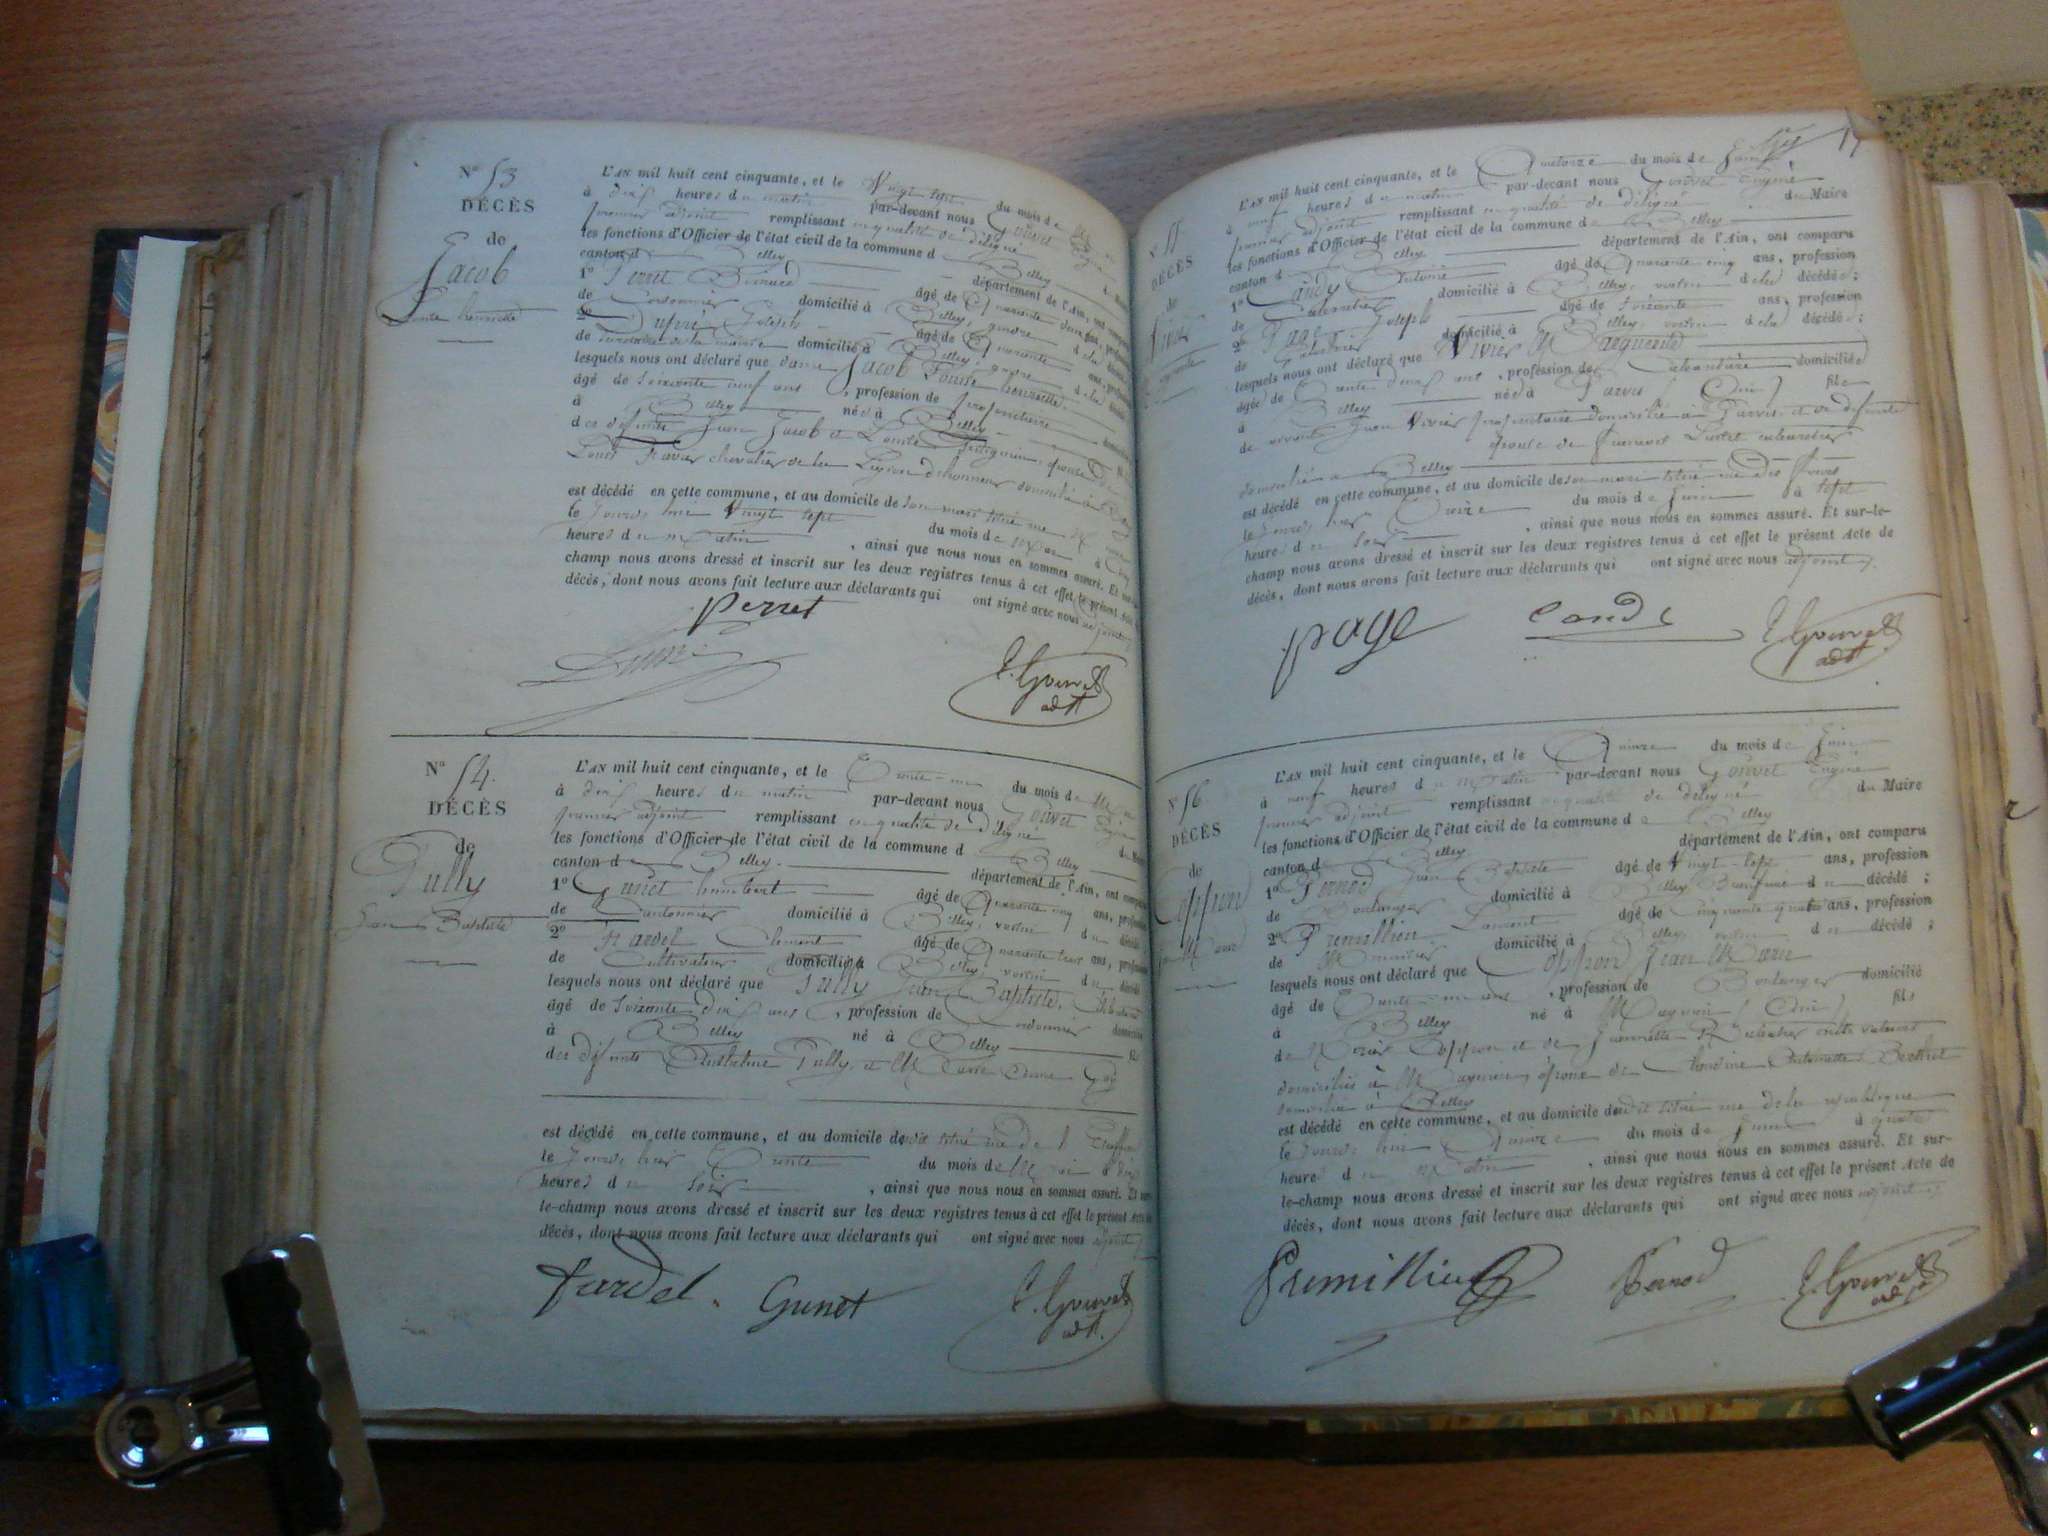 N° 53
DÉCÈS
de
Jacob
L'AN mil huit cent cinquante, et le Vingt sept du mois de
à dix heures du matin par-devant nous Gouvet
premier adjoint remplissant en qualité de délégué
les fonctions d'Officier de l'état civil de la commune de Belley
canton de Belley département de l'Ain, ont comparu
1° Perret âgé de Quarante ans, profession
de Cordonnier domicilié à Belley, de la décédée
2° Dupré Joseph âgé de Quarante ans, profession
de la mairie domicilié à Belley, de la décédée
lesquels nous ont déclaré que dame Jacob Louise henriette
âgé de soixante neuf ans, profession de propriétaire domicilié
à Belley né à Belley
des défunts Jean Jacob et
Louis chevalier de la Légion d'honneur domicilié à
est décédé en cette commune, et au domicile de son mari
le Jourd'hui Vingt sept du mois de Mai à
heures du Matin, ainsi que nous nous en sommes assuré. Et
champ nous avons dressé et inscrit sur les deux registres tenus à cet effet le présent Acte
décès, dont nous avons fait lecture aux déclarants qui ont signé avec nous adjoint
Perret
E. Gouvet
adt
N° 54
DÉCÈS
de
Tully
Jean Baptiste
L'AN mil huit cent cinquante, et le Trente-un du mois de Mai
à dix heures du matin par-devant nous Gouvet
premier adjoint remplissant en qualité de délégué
les fonctions d'Officier de l'état civil de la commune de Belley
canton de Belley département de l'Ain, ont comparu
1° Gunet humbert âgé de Quarante cinq ans, profession
de Cantonnier domicilié à Belley, voisin du décédé
2° Fardel Clément âgé de Quarante trois ans, profession
de Cultivateur domicilié à Belley, voisin du décédé
lesquels nous ont déclaré que Tully Jean Baptiste, Célibataire
âgé de soixante dix ans, profession de Cordonnier domicilié
à Belley né à Belley fils
des défunts Tully, et Marie Anne
est décédé en cette commune, et au domicile de
le Jourd'hier Trente du mois de Mai à dix
heures du soir, ainsi que nous nous en sommes assuré. Et sur-
le-champ nous avons dressé et inscrit sur les deux registres tenus à cet effet le présent Acte de
décès, dont nous avons fait lecture aux déclarants qui ont signé avec nous adjoint
Fardel. Gunet E. Gouvet
adt.
17
N° 55
DÉCÈS
de
L'AN mil huit cent cinquante, et le Quatorze du mois de Juin
à neuf heures du matin par-devant nous Gouvet Eugène
premier adjoint remplissant en qualité de délégué du Maire
les fonctions d'Officier de l'état civil de la commune de Belley
canton de Belley département de l'Ain, ont comparu
1° Candy Antoine âgé de Quarante cinq ans, profession
de domicilié à Belley, voisin de la décédée;
2° Page Joseph âgé de soixante ans, profession
de domicilié à Belley, voisin de la décédée;
lesquels nous ont déclaré que Vivier Marguerite
âgée de Trente deux ans, profession de domiciliée
à Belley née à Parves (Ain) fille
de vivant Jean Vivier propriétaire domicilié à Parves et de défunte
épouse de François
domicilié à Belley
est décédé en cette commune, et au domicile de son mari situé rue des
le Jourd'hier Treize du mois de Juin à sept
heures du soir, ainsi que nous nous en sommes assuré. Et sur-le-
champ nous avons dressé et inscrit sur les deux registres tenus à cet effet le présent Acte de
décès, dont nous avons fait lecture aux déclarants qui ont signé avec nous adjoint
page E. Gouvet
adt
N° 56
DÉCÈS
de
Coppon
L'AN mil huit cent cinquante, et le Quinze du mois de Juin
à neuf heures du Matin par-devant nous Gouvet Eugène
premier adjoint remplissant en qualité de délégué du Maire
les fonctions d'Officier de l'état civil de la commune de Belley
canton de Belley département de l'Ain, ont comparu
1° Pernod Jean Baptiste âgé de Vingt-sept ans, profession
de Boulanger domicilié à Belley, du décédé;
2° Premillieu Laurent âgé de Cinquante quatre ans, profession
de Menuisier domicilié à Belley, voisin du décédé;
lesquels nous ont déclaré que Coppon Jean Marie
âgé de Trente-un ans, profession de Boulanger domicilié
à Belley né à (Ain) fils
de Coppon et de
domiciliés à épouse de Antoinette Berthet
domicilié à Belley
est décédé en cette commune, et au domicile dudit situé rue de la république
le Jourd'hui Quinze du mois de Juin à quatre
heures du Matin, ainsi que nous nous en sommes assuré. Et sur-
le-champ nous avons dressé et inscrit sur les deux registres tenus à cet effet le présent Acte de
décès, dont nous avons fait lecture aux déclarants qui ont signé avec nous adjoint
Premillieu Pernod E. Gouvet
adt